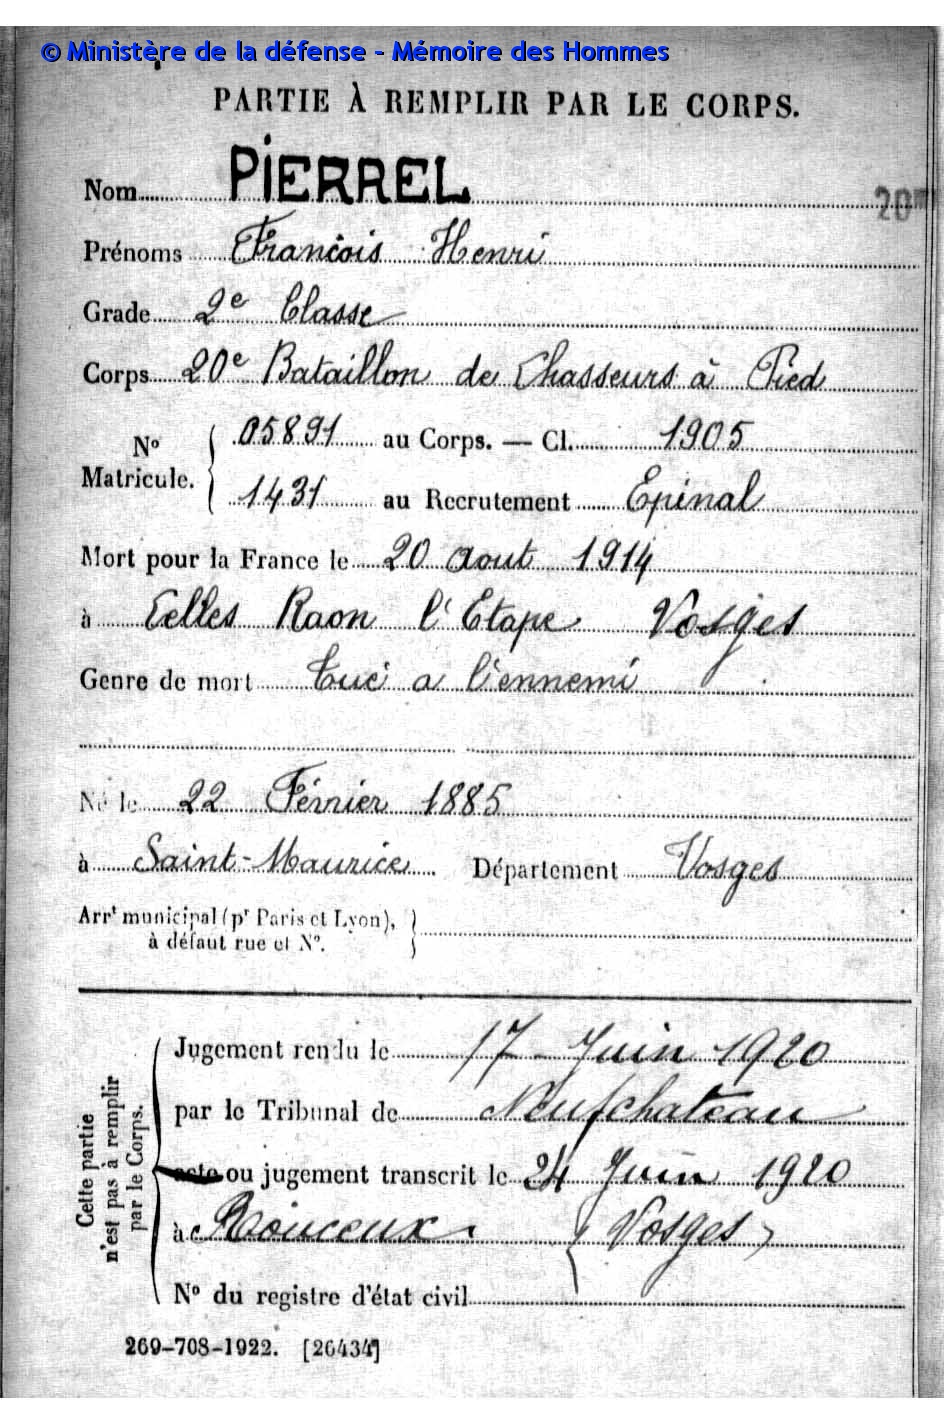 © Ministère de la défense - Mémoire des Hommes
PARTIE À REMPLIR PAR LE CORPS.
Nom PIERREL
20
Prénoms François Henri
Grade 2e Classe
Corps 20e Bataillon de Chasseurs à Pied
No Matricule. { 05891 au Corps. — Cl. 1905
1431 au Recrutement Epinal
Mort pour la France le 20 Aout 1914
à Celles Raon l'Etape Vosges
Genre de mort Tué a l'ennemi
Né le 22 Février 1885
à Saint-Maurice Département Vosges
Arrt municipal (pr Paris et Lyon),
à défaut rue et No.
Cette partie
n'est pas à remplir
par le Corps.
Jugement rendu le 17 Juin 1920
par le Tribunal de Neufchateau
acte ou jugement transcrit le 24 Juin 1920
à Rouceux (Vosges)
No du registre d'état civil
269-708-1922. [26434]